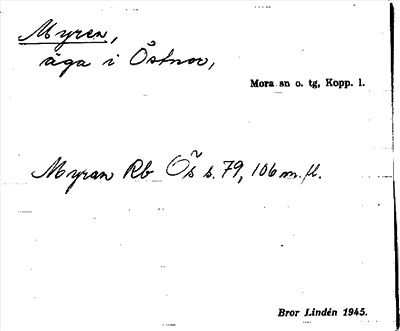 Myren,
äga i Östnor,
Mora sn o. tg, Kopp. l.
Myran Rb Õs s. 79, 106 m. fl.
Bror Lindén 1945.